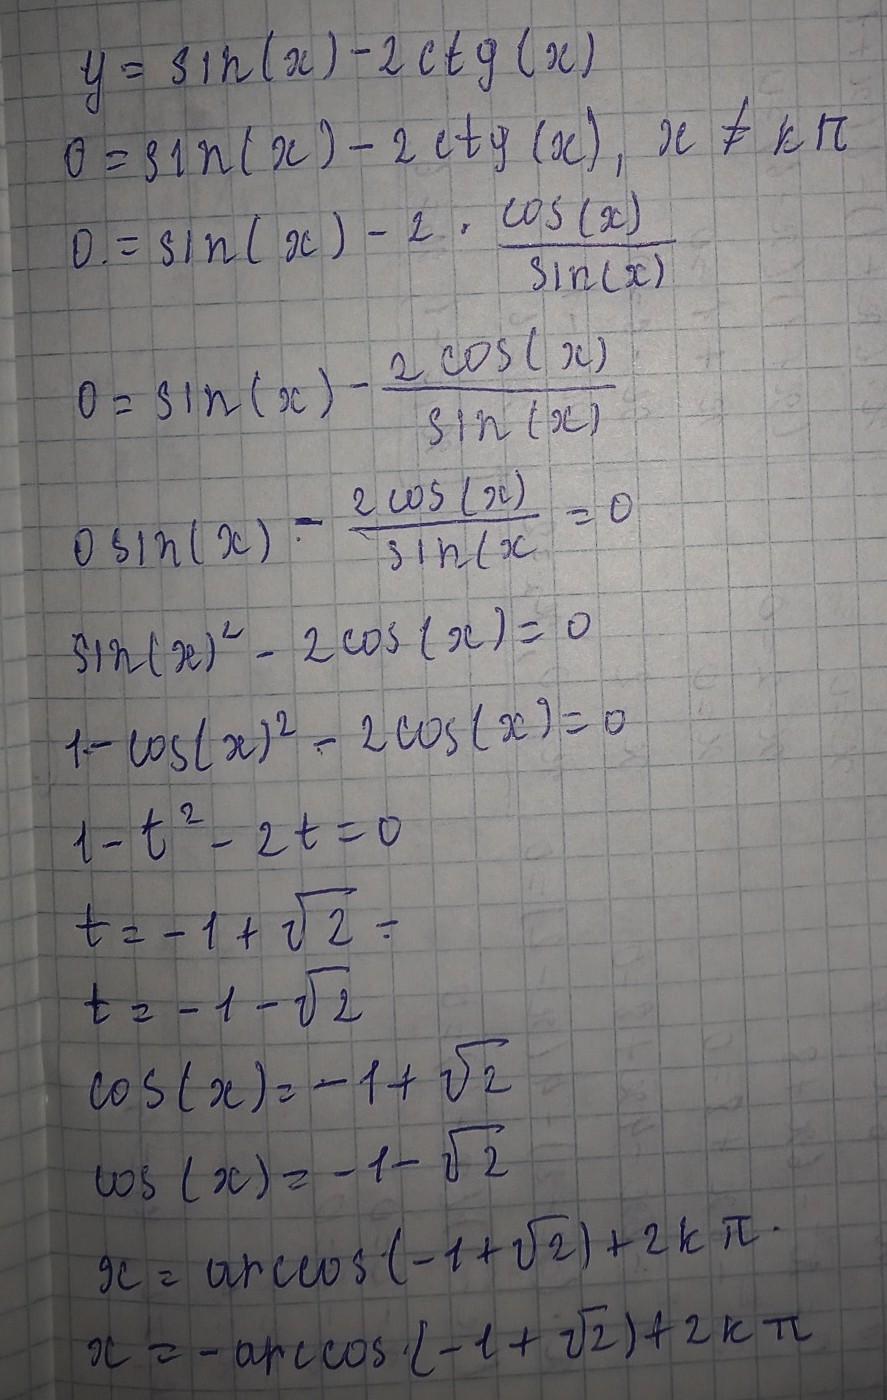 y = sin(x) - 2ctg(x)
0 = sin(x) - 2ctg(x), x ≠ kπ
0 = sin(x) - 2 · cos(x)/sin(x)
0 = sin(x) - 2cos(x)/sin(x)
0 sin(x) - 2cos(x)/sin(x = 0
sin(x)² - 2cos(x) = 0
1 - cos(x)² - 2cos(x) = 0
1 - t² - 2t = 0
t = -1 + √2 -
t = -1 - √2
cos(x) = -1 + √2
cos(x) = -1 - √2
x = arccos(-1 + √2) + 2kπ.
x = -arccos(-1 + √2) + 2kπ